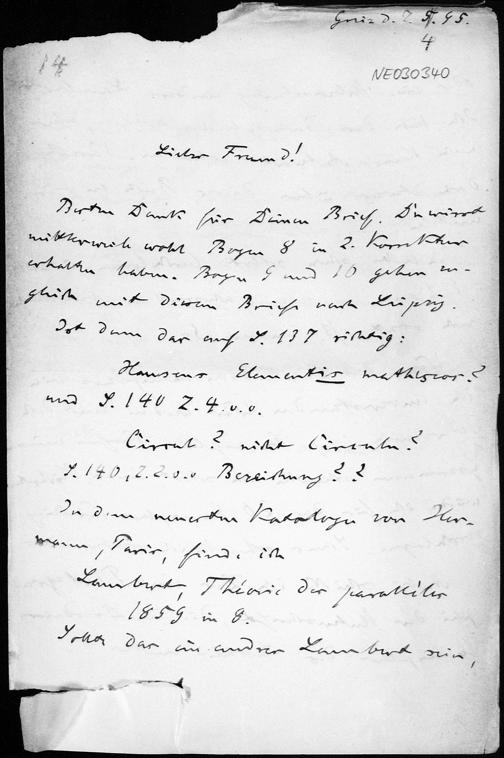 d. 2. 5. 95.
4
14
NE030340
Lieber Freund!
Besten Dank für Deinen Brief. Du wirst
mittlerweile wohl Bogen 8 in 2. Korrektur
erhalten haben. Bogen 9 und 10 gehen zu-
gleich mit diesem Briefe nach Leipzig.
Ist denn das auf S. 137 richtig:
Hausens Elementis matheseos?
und S. 140 Z. 4. v. o.
Circul? nicht Circuln?
S. 140, Z. 2. v. o Bezeichnung??
In dem neuesten Kataloge von Her-
mann, Paris, finde ich
Lambert, Théorie des parallèles
1859 in 8.
Sollte das ein andrer Lambert sein,